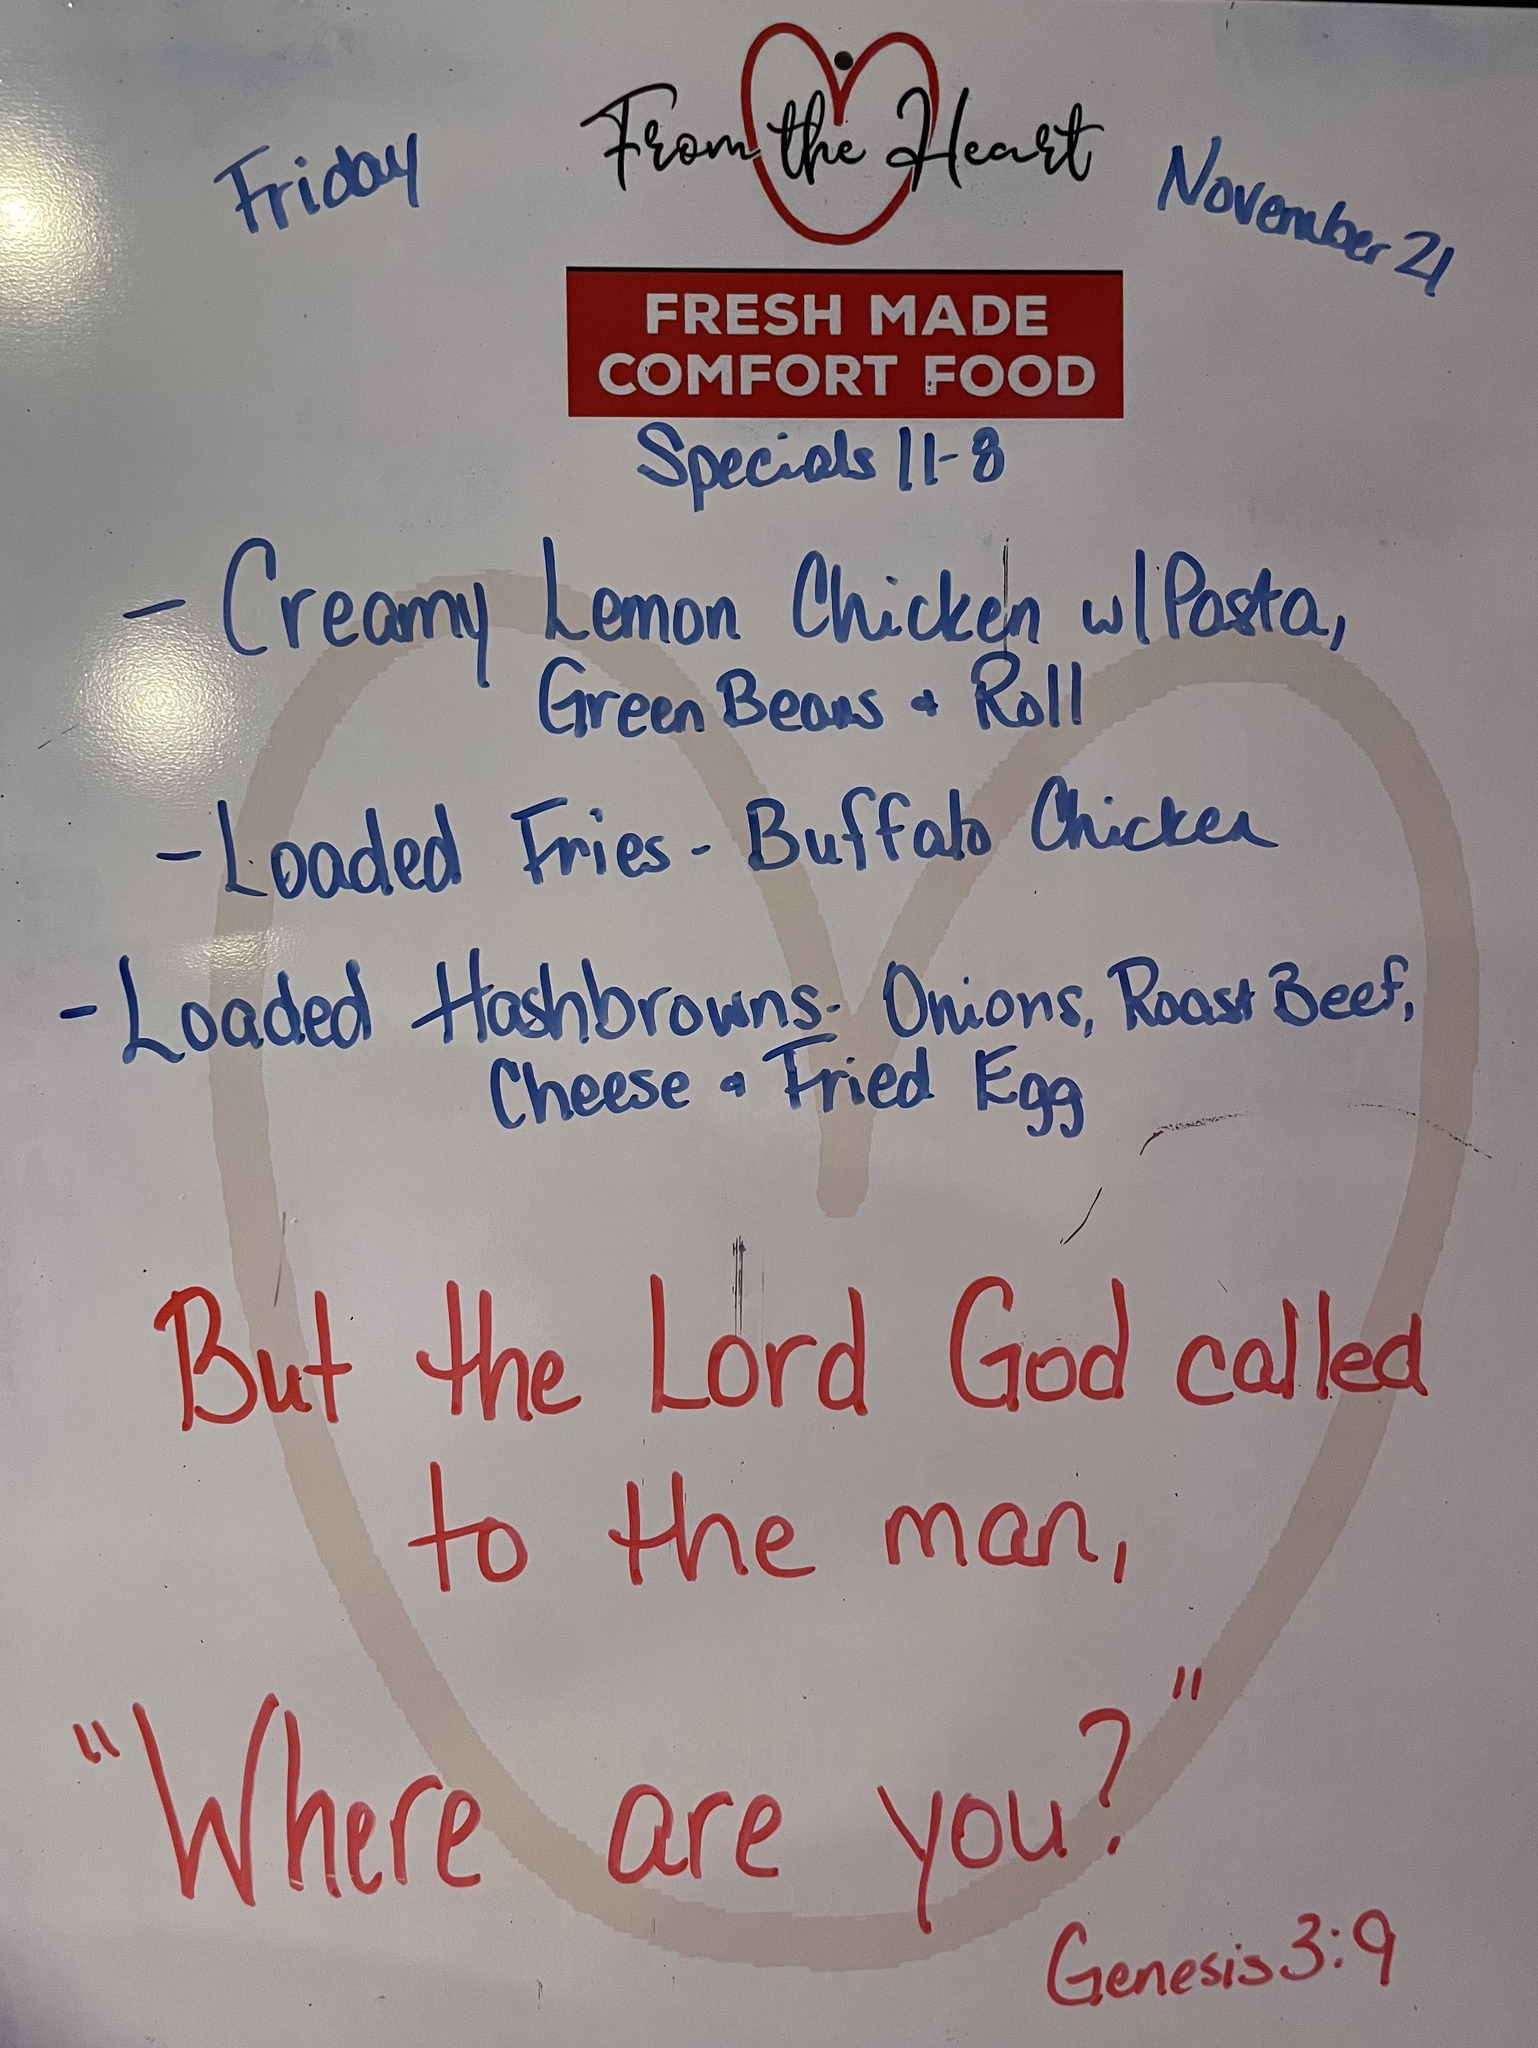 Friday
From the Heart
November 21
FRESH MADE
COMFORT FOOD
Specials 11-8
- Creamy Lemon Chicken w/Pasta,
Green Beans & Roll
- Loaded Fries - Buffalo Chicken
- Loaded Hashbrowns- Onions, Roast Beef,
Cheese & Fried Egg
But the Lord God called
to the man,
"Where are you?"
Genesis 3:9